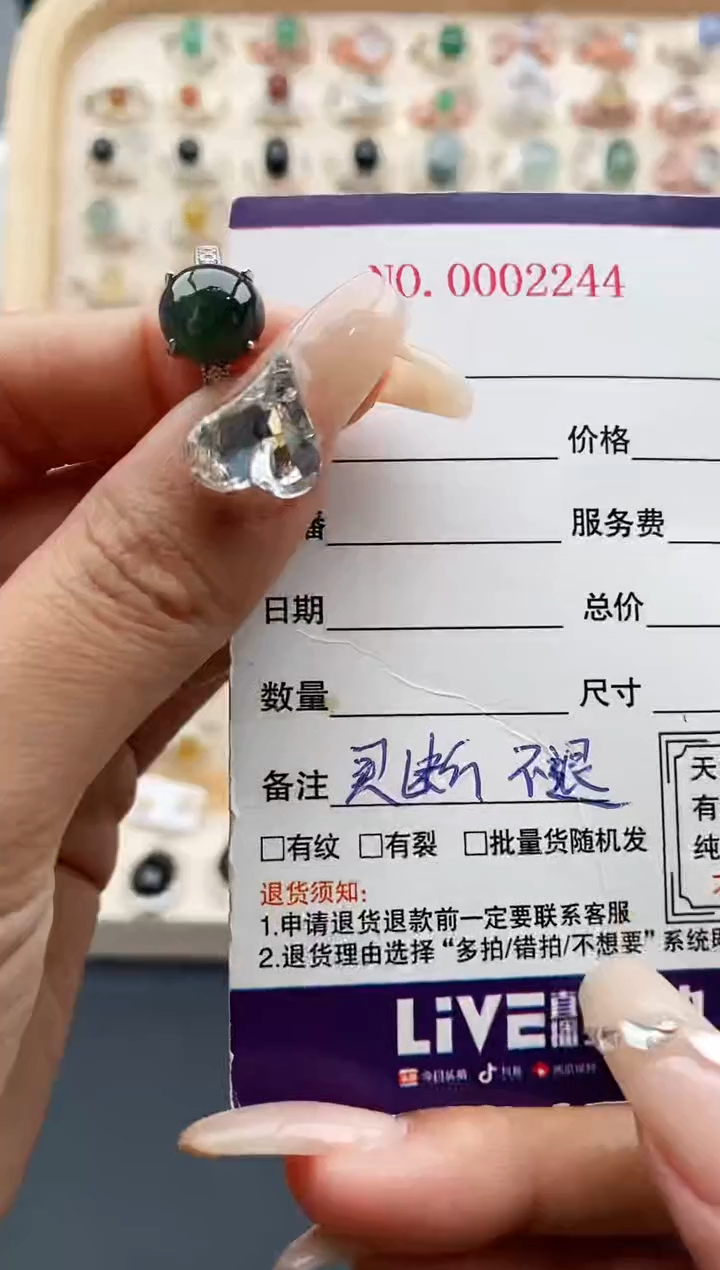 NO. 0002244
价格
播
服务费
日期
总价
数量
尺寸
备注 买断 不退
□有纹 □有裂 □批量货随机发
天
有
纯
退货须知:
1.申请退货退款前一定要联系客服
2.退货理由选择“多拍/错拍/不想要”系统
LiVE直播
今日头条 抖音